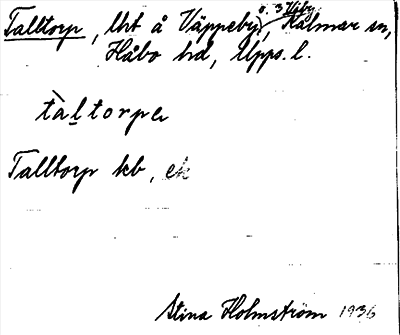 Talltorp, lht å Väppeby, o. 3 Väby, Kalmar sn,
Håbo hd, Upps. l.
tàltorpa
Talltorp kb, ek
Stina Holmström 1936